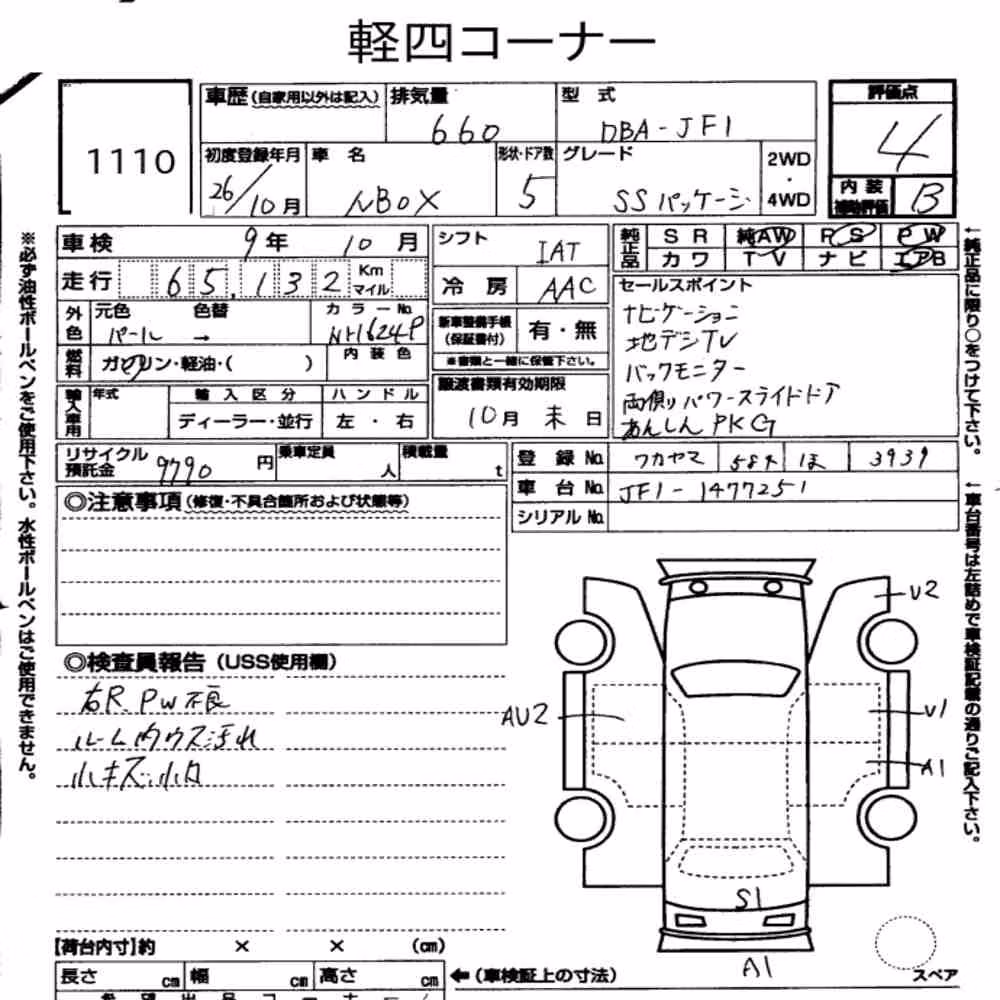 軽四コーナー
1110
車歴(自家用以外は記入) 排気量 型式 評価点
660 DBA-JF1 4
初度登録年月 車名 形状・ドア数 グレード 2WD・4WD
26/10月 NBOX 5 SSパッケージ
内装補助評価 B
車検 9年 10月
走行 65,132 Km マイル
シフト IAT
冷房 AAC
純正品 SR 純AW PS PW
カワ TV ナビ エアB
外色 元色 色替 カラーNo.
パール → NH624P
燃料 ガソリン・軽油・( ) 内装色
新車整備手帳(保証書付) 有・無
※書類と一緒に保管下さい。
輸入車用 年式 輸入区分 ハンドル
ディーラー・並行 左・右
譲渡書類有効期限
10月 末日
セールスポイント
ナビゲーション
地デジTV
バックモニター
両側パワースライドドア
あんしんPKG
リサイクル預託金 9790円 乗車定員 人 積載量 t
登録No. ワカヤマ 581 ほ 3939
車台No. JF1-1477251
シリアルNo.
◎注意事項(修復・不具合箇所および状態等)
◎検査員報告(USS使用欄)
右R.PW不良
ルーム内ウス汚れ
小キズ.小凹
U2
AU2
U1
A1
S1
A1
スペア
【荷台内寸】約 × × (cm)
長さ cm 幅 cm 高さ cm ←(車検証上の寸法)
※必ず油性ボールペンをご使用下さい。水性ボールペンはご使用できません。
←純正品に限り○をつけて下さい。
←車台番号は左詰めで車検証記載の通りご記入下さい。